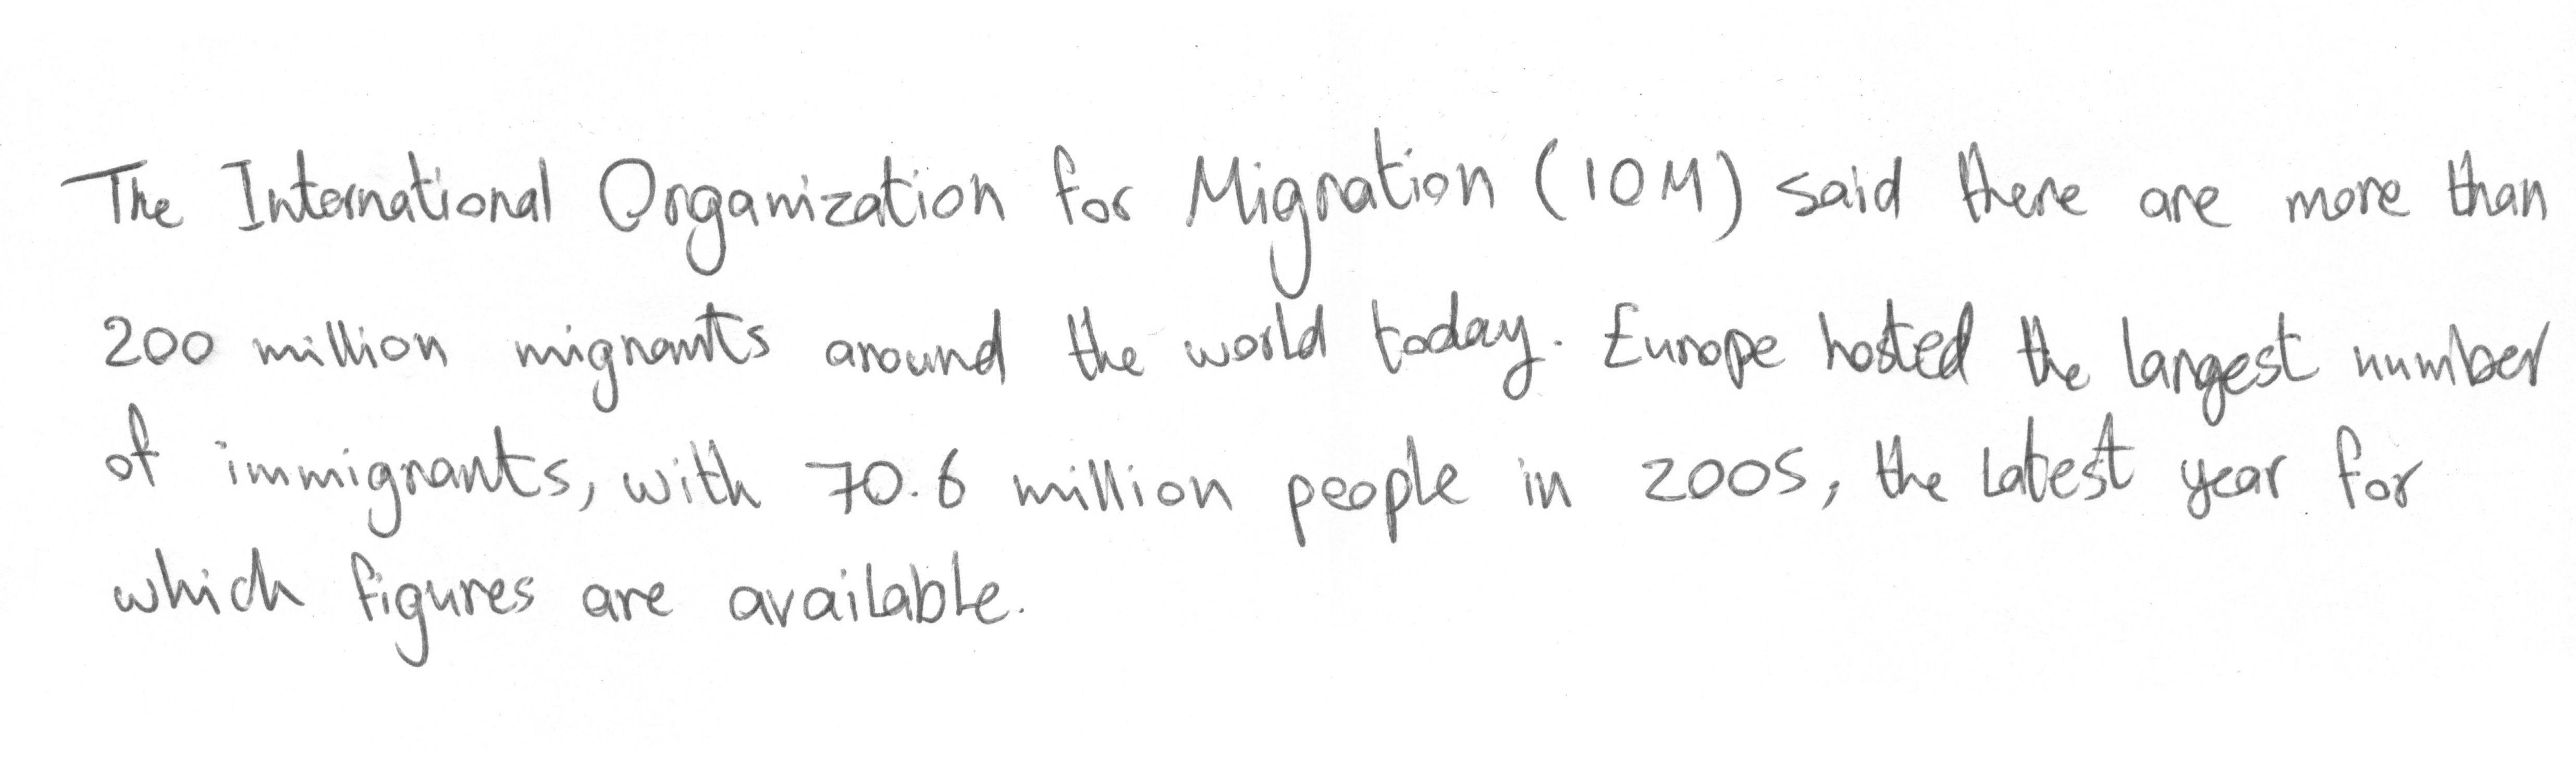 The International Organization for Migration (IOM) said there are more than
200 million migrants around the world today. Europe hosted the largest number
of immigrants, with 70.6 million people in 2005, the latest year for
which figures are available.